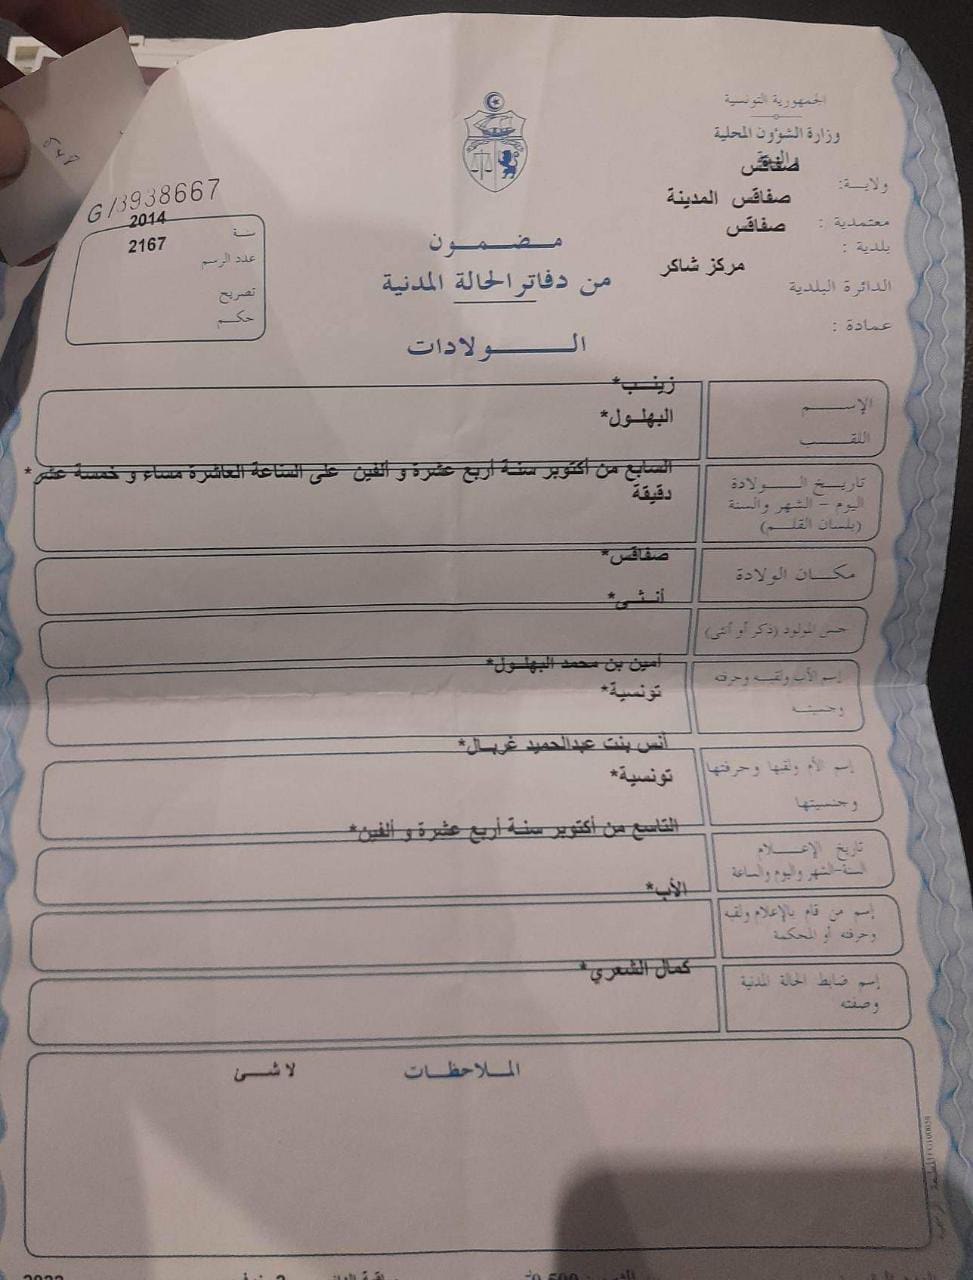 الجمهورية التونسية
وزارة الشؤون المحلية
ولاية: صفاقس
معتمدية : صفاقس المدينة
بلدية : صفاقس
الدائرة البلدية مركز شاكر
عمادة :
G/3938667
سنة 2014
عدد الرسم 2167
تصريح
حكم
مضمون
من دفاتر الحالة المدنية
الولادات
الإسم زينب*
اللقب البهلول*
تاريخ الولادة
اليوم - الشهر والسنة
(بلسان القلم)
السابع من أكتوبر سنة أربع عشرة و ألفين على الساعة العاشرة مساء و خمسة عشر*
دقيقة
مكان الولادة صفاقس*
جنس المولود (ذكر أو أنثى) أنثى*
إسم الأب ولقبه وحرفته
وجنسيته
أمين بن محمد البهلول*
تونسية*
إسم الأم ولقبها وحرفتها
وجنسيتها
أنس بنت عبدالحميد غربال*
تونسية*
تاريخ الإعلام
السنة-الشهر واليوم والساعة
التاسع من أكتوبر سنة أربع عشرة و ألفين*
إسم من قام بالإعلام ولقبه
وحرفته أو المحكمة
الأب*
إسم ضابط الحالة المدنية
وصفته
كمال الشعري*
الملاحظات لا شئ